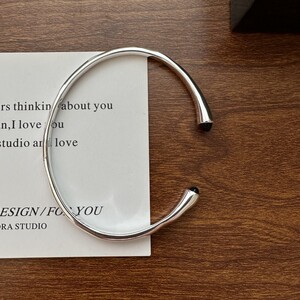 rs thinking about you
n,I love you
studio and love
ESIGN / FOR YOU
ORA STUDIO